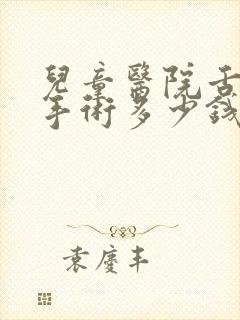 兒童醫院舌
手術多少錢
袁慶丰